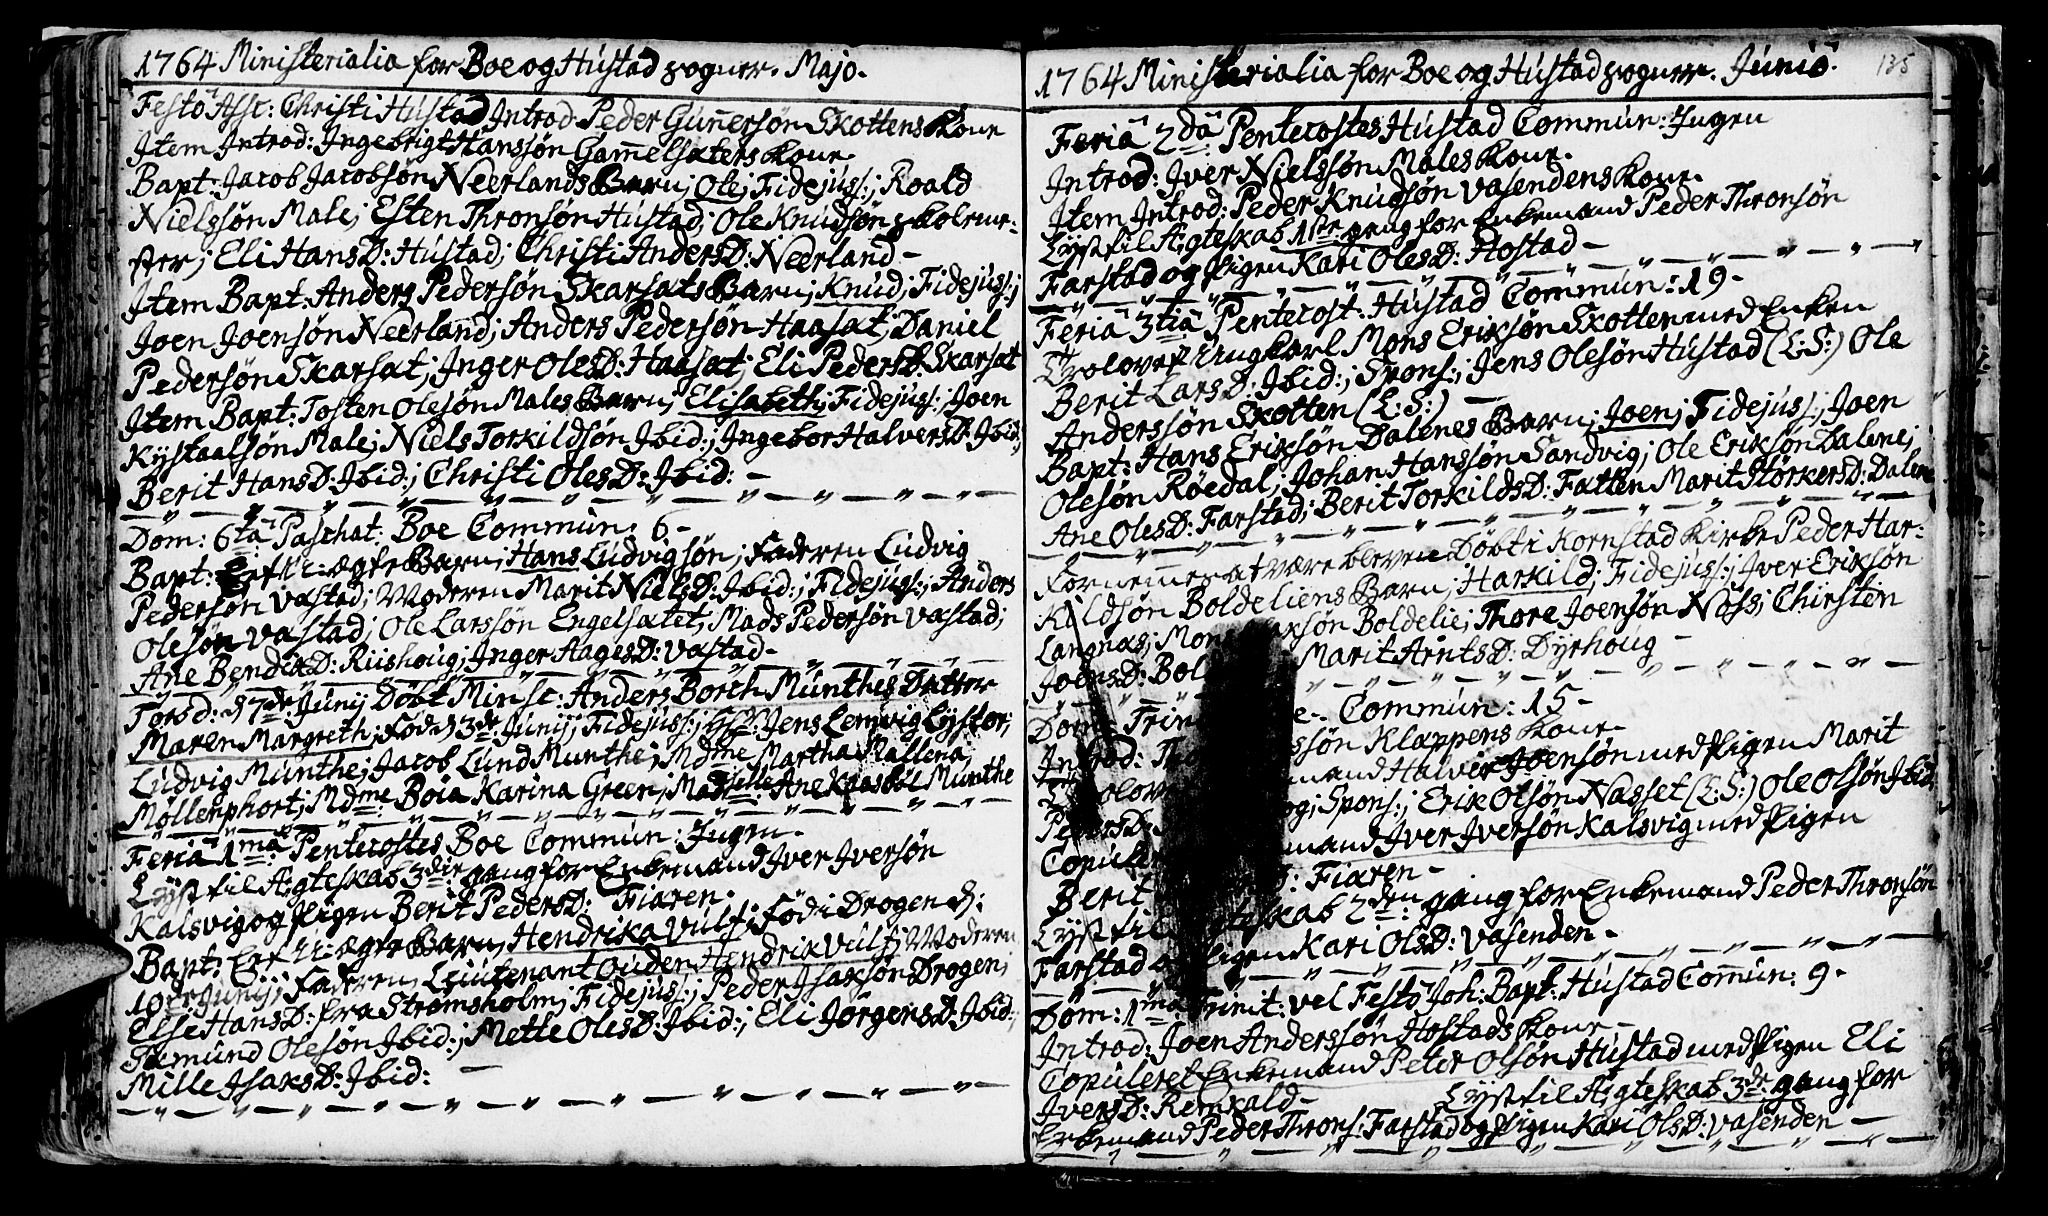 1764 Ministerialia for Boe og Hustad sogner. Majo.
Festo Assc: Christi Hustad Introd. Peder Gunnersøn Skottens Kone
Item Introd: Ingebrigt Hanssøn Gammelsæters Kone.
Bapt: Jacob Jacobsøn Neerlands Barn; Ole; Fidejuss:; Roald
Nielssøn Male; Esten Thronsøn Hustad; Ole Knudsøn skoleme-
ster; Eli HansD: Hustad; Christi AndersD: Neerland -
Item Bapt: Anders Pedersøn Skarsæts Barn; Knud; Fidejuss:;
Joen Joensøn Neerland; Anders Pedersøn Haasæt; Daniel
Pedersøn Skarsæt; Inger OlesD: Haasæt; Eli PedersD: Skarsæt
Item Bapt: Tosten Olesøn Males Barn; Elisabeth; Fidejuss:; Joen
Kystaalsøn Male; Niels Torkildsøn Ibid:; Ingebor HalversD: Ibid:;
Berit HansD: Ibid:; Christi OlesD: Ibid: -
Dom: 6ta Paschat: Boe Commun: 6 -
Bapt: Et U: ægte Barn; Hans Ludvigsøn; Faderen Ludvig
Pedersøn Vastad; Moderen Marit NielsD: Ibid:; Fidejuss:; Anders
Olesøn Vastad; Ole Larssøn Engelsætet; Mads Pedersøn Vastad;
Ane BendixD: Riishoug; Inger AagesD: Vastad -
Torsd: d 7de Junij Døbt Min sc: Anders Borch Munthes Datter
Maren Margreth; Fød d 3de Junij; Fidejuss:; Jens Lemvig Lystor;
Ludvig Munthe; Jacob Lund Munthe; Mdme Martha Mallena
Møllenphort; Mdme Boia Karina Green; Madselle Ane Munthe
Feria 1ma Pentecostes Boe Commun: Ingen -
Lyst til Ægteskab 3die gang for Enkemand Iver Iversøn
Kalsvig og Pigen Berit PedersD: Fiaren.
Bapt: Et U: ægte Barn; Hendrika Vulf; Fød i Drogen d:
10de Junij; Faderen, Leiutenant Ouden Hendrik Vulf; Moderen
Else HansD: fra Strømsholm; Fidejuss:; Peder Isaksøn Drogen;
Sæmund Olesøn Ibid:; Mette OlesD: Ibid:; Eli JørgensD: Ibid:;
Mille IsaksD: Ibid: -
1764 Ministerialia for Boe og Hustad sogner. Junio.
135
Feria 2da Pentecostes Hustad Commun: Ingen
Introd: Iver Nielssøn Males Kone.
Item Introd: Peder Knudsøn Vasendens Kone.
Lyst til Ægteskab 1ste gang for Enkemand Peder Thronsøn
Farstad og Pigen Kari OlesD: Hostad -
Feria 3tia Pentecost: Hustad Commun: 19 -
Trolovet Ungkarl Mons Eriksøn Skotten med Enken
Berit LarsD: Ibid:; Spons:; Jens Olesøn Hustad (L:S:) Ole
Anderssøn Skotten (L:S:) -
Bapt: Hans Eriksøn Dalenes Barn; Joen; Fidejuss:; Joen
Olesøn Røedal; Johan Hanssøn Sandvig; Ole Eriksøn Dalene;
Ane OlesD: Farstad; Berit TorkildsD: Fatten Marit StørkersD: Dalene
Fornemmes at være bleven Døbt i Kornstad Kirke Peder Har-
kildsøn Boldeliens Barn; Harkild; Fidejuss:; Iver Eriksøn
Langnæs; Mons søn Boldelie; Thore Joensøn Noss; Chirsten
JoensD: Marit ArntsD: Dyrhoug -
Dom: Commun: 15 -
Introd: søn Klæppens Kone -
Halver Joensøn med Pigen Marit
PedersD: Spons:; Erik Olsøn Næsset (L:S:) Ole Olsøn Ibid
Iver Iversøn Kalsvig med Pigen
Berit Fiaren -
Lyst til Ægteskab 2den gang for Enkemand Peder Thronsøn
Farstad og Pigen Kari OlsD: Vasenden -
Dom: 1ma Trinit: vel Festo Joh: Bapt: Hustad Comun: 9 -
Introd: Joen Anderssøn Hostads Kone -
Copuleret Enkemand Peter Olsøn Hustad med Pigen Eli
IversD: Remkald - Lyst til Ægteskab 3de gang for
Enkemand Peder Throns: Farstad og Pigen Kari OlsD: Vasenden -